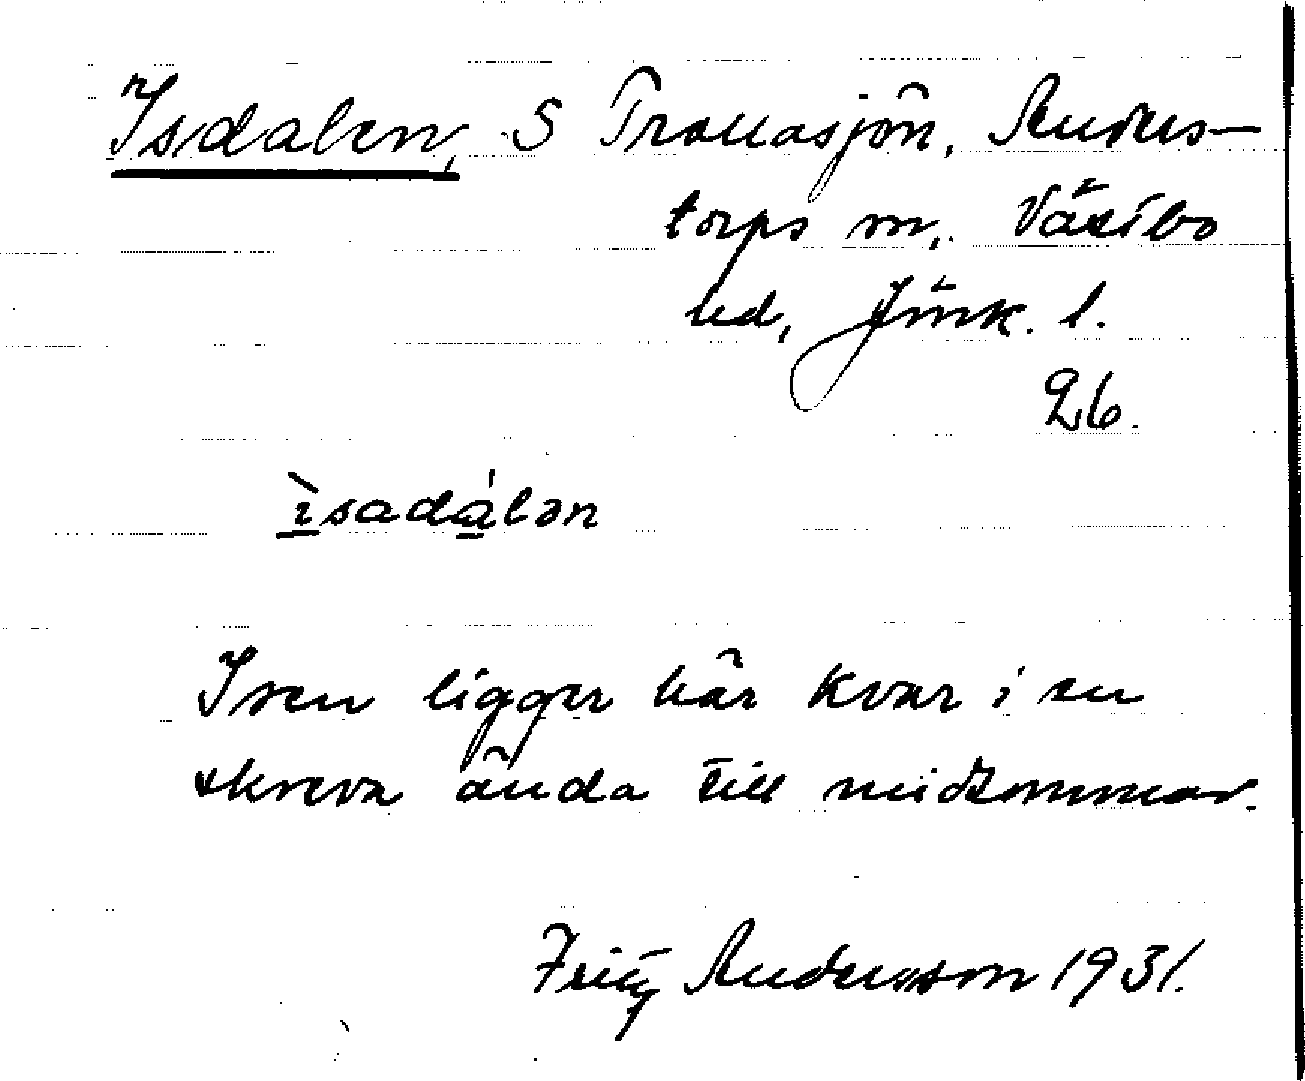 Isdalen, S Tranasjön, Anders-
torps sn, Västbo
hd, Jönk. l.
26.
ìsadálən
Isen ligger här kvar i en
skreva ända till midsommar.
Fritz Andersson 1931.